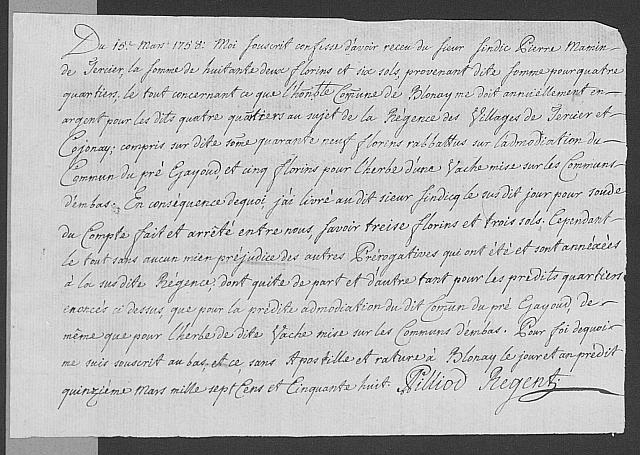 Du 15.e Mars 1758: Moi souscrit confesse d'avoir receu du sieur Sindic Pierre Mamin
de Tercier, la somme de huitante deux florins et six sols, provenant dite somme pour quatre
quartiers, le tout concernant ce que l'honble Comune de Blonay me doit anniellement en
argent pour les dits quatre quartiers au sujet de la Régence des Villages de Tercier et
Cojonay; compris sur dite some quarante neuf florins rabbattus sur l'admodiation du
Commun du pré Gayoud, et cinq florins pour l'herbe d'une Vache mise sur les Communs
d'embas: En conséquence dequoi, j'ai livré au dit sieur Sindicq le sus dit jour pour soude
du Compte fait et arrêté entre nous, savoir treise florins et trois sols; Cependant
le tout sans aucun mien préjudice des autres Prérogatives qui ont été et sont annéxées
à la sus dite Régence; dont quite de part et d'autre tant pour les prédits quartiers
enoncés ci dessus, que pour la prédite admodiation du dit Comun du pré Gayoud, de-
même que pour l'herbe de dite Vache mise sur les Communs d'embas. Pour foi dequoi
me suis souscrit au bas, et ce sans Apostille et rature à Blonay le jour et an prédit
quinzième Mars mille sept Cens et Cinquante huit Pilliod Regent: